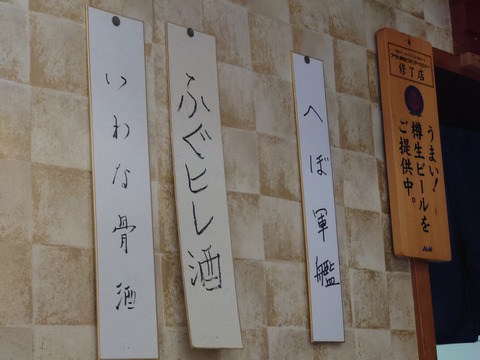 いわな骨酒
ふぐヒレ酒
へぼ軍艦
修了店
うまい!
樽生ビールを
ご提供中。
Asahi